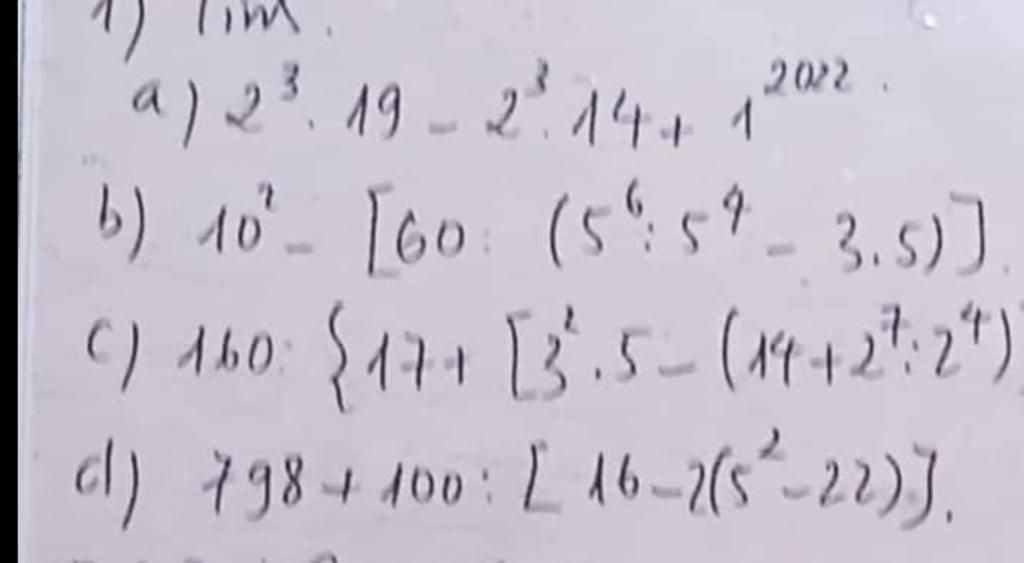 1) Tìm.
a) 2³. 19 - 2³. 14 + 1²⁰²² .
b) 10² - [60 : (5⁶ : 5⁴ - 3.5)].
c) 160 : {17 + [3² . 5 - (14 + 2⁷ : 2⁴)]
d) 798 + 100 : [ 16 - 2(5² - 22)].